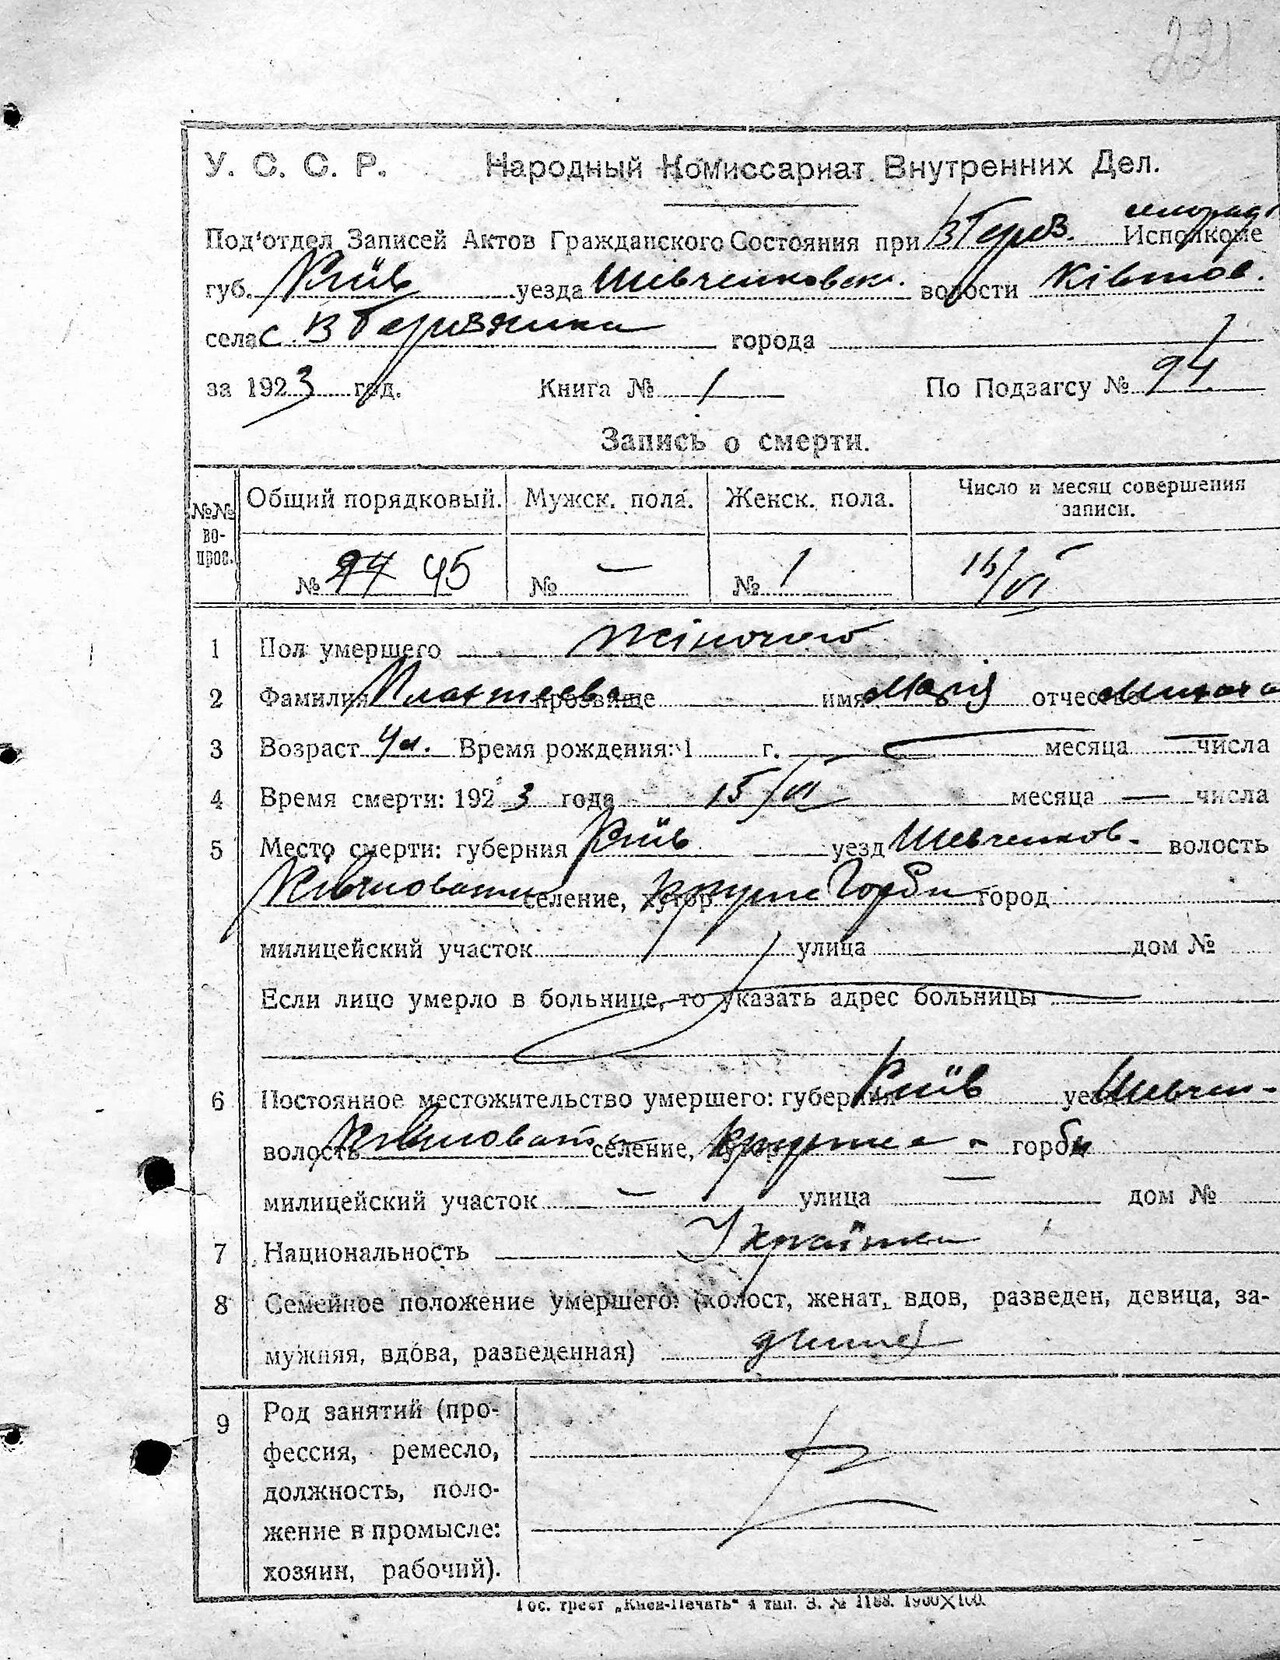 221
У. С. С. Р. Народный Комиссариат Внутренних Дел.
Под'отдел Записей Актов Гражданского Состояния при В Берез. Исполкоме
губ. Київ уезда Шевченковск. волости Ківшов.
села с. В Березянка города
за 1923 год. Книга № 1 По Подзагсу № 94
Запись о смерти.
№№ вопрос. Общий порядковый. Мужск. пола. Женск. пола. Число и месяц совершения записи.
№ 94 45 № — № 1 16/VI
1 Пол умершего жіночого
2 Фамилия прозвище имя Марія отчество
3 Возраст Время рождения: 1 г. месяца числа
4 Время смерти: 1923 года 15/VI месяца — числа
5 Место смерти: губерния Київ уезд Шевченков. волость
селение, хутор Круте Горби город
милицейский участок улица дом №
Если лицо умерло в больнице, то указать адрес больницы
6 Постоянное местожительство умершего: губерния Київ уезд Шевчен-
волость селение, хутор горби
милицейский участок — улица — дом №
7 Национальность Українка
8 Семейное положение умершего: (холост, женат, вдов, разведен, девица, за-
мужняя, вдова, разведенная)
9 Род занятий (про-
фессия, ремесло,
должность, поло-
жение в промысле:
хозяин, рабочий).
Гос. трест „Киев-Печать" 4 тип. З. № 1188. 1900×100.